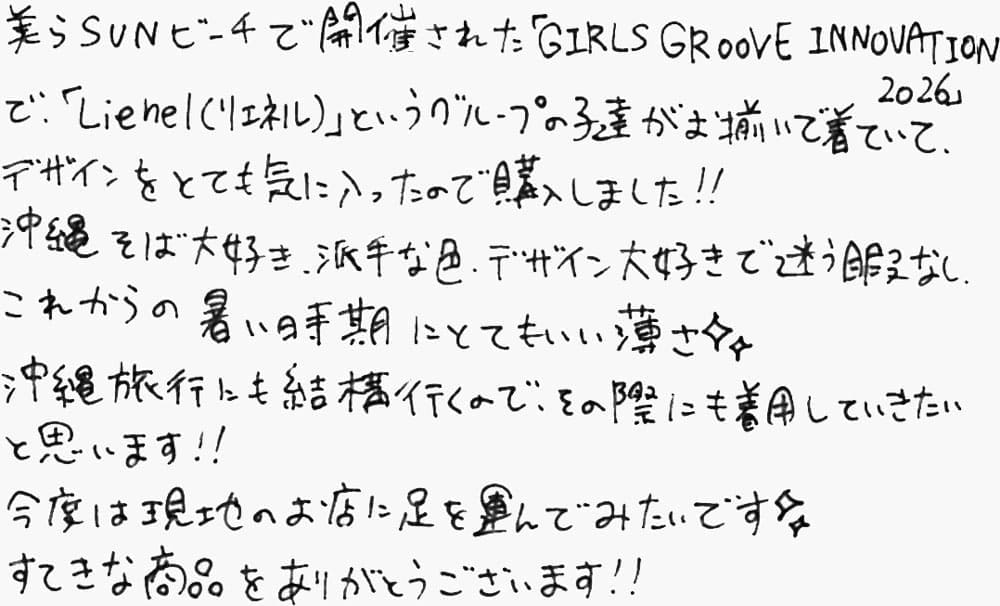 美らSUNビーチで開催された「GIRLS GROOVE INNOVATION
2026」
で、「Lienel(リエネル)」というグループの子達がお揃いで着ていて、
デザインをとても気に入ったので購入しました!!
沖縄そば大好き、派手な色、デザイン大好きで迷う暇なし、
これからの暑い時期にとてもいい薄さ✧✧
沖縄旅行にも結構行くので、その際にも着用していきたい
と思います!!
今度は現地のお店に足を運んでみたいです✧✧
すてきな商品をありがとうございます!!